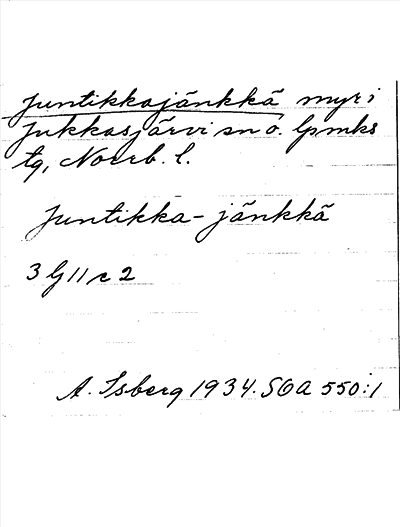 Juntikkajänkkä myr i
Jukkasjärvi sn o. lpmks
tg, Norrb. l.
Juntikka-jänkkä
3 G 11 c 2
A. Isberg 1934. SOA 550:1